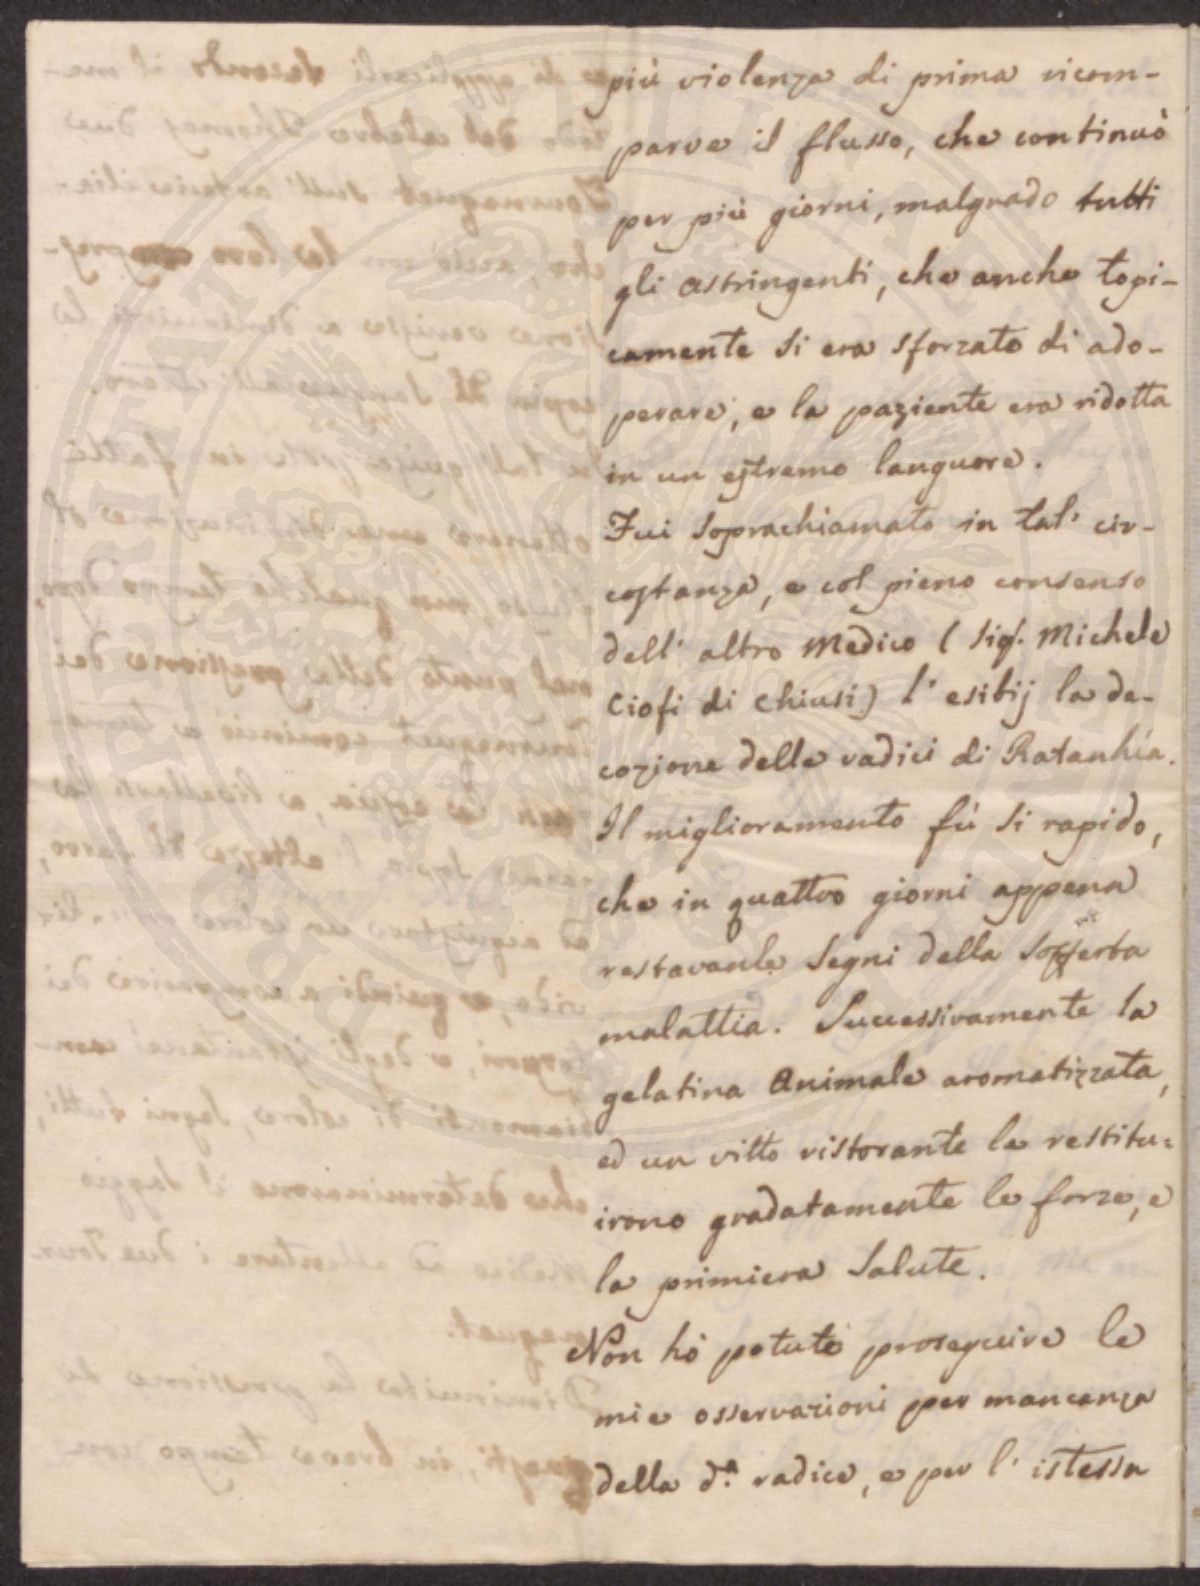 più violenza di prima ricom-
parve il flusso, che continuò
per più giorni, malgrado tutti
gli astringenti, che anche topi-
camente si era sforzato di ado-
perare, e la paziente era ridotta
in un estremo languore.
Fui soprachiamato in tal' cir-
costanza, e col pieno consenso
dell' altro Medico (Sig. Michele
Ciofi di Chiusi) l' esibij la de-
cozione delle radici di Ratanhia.
Il miglioramento fù si rapido,
che in quattro giorni appena
restavanle segni della sofferta
malattia. Successivamente la
gelatina Animale aromatizzata,
ed un vitto ristorante le restitu=
irono gradatamente le forze, e
la primiera salute.
Non hò potuto proseguire le
mie osservazioni per mancanza
della d.ª radice, e per l' istessa